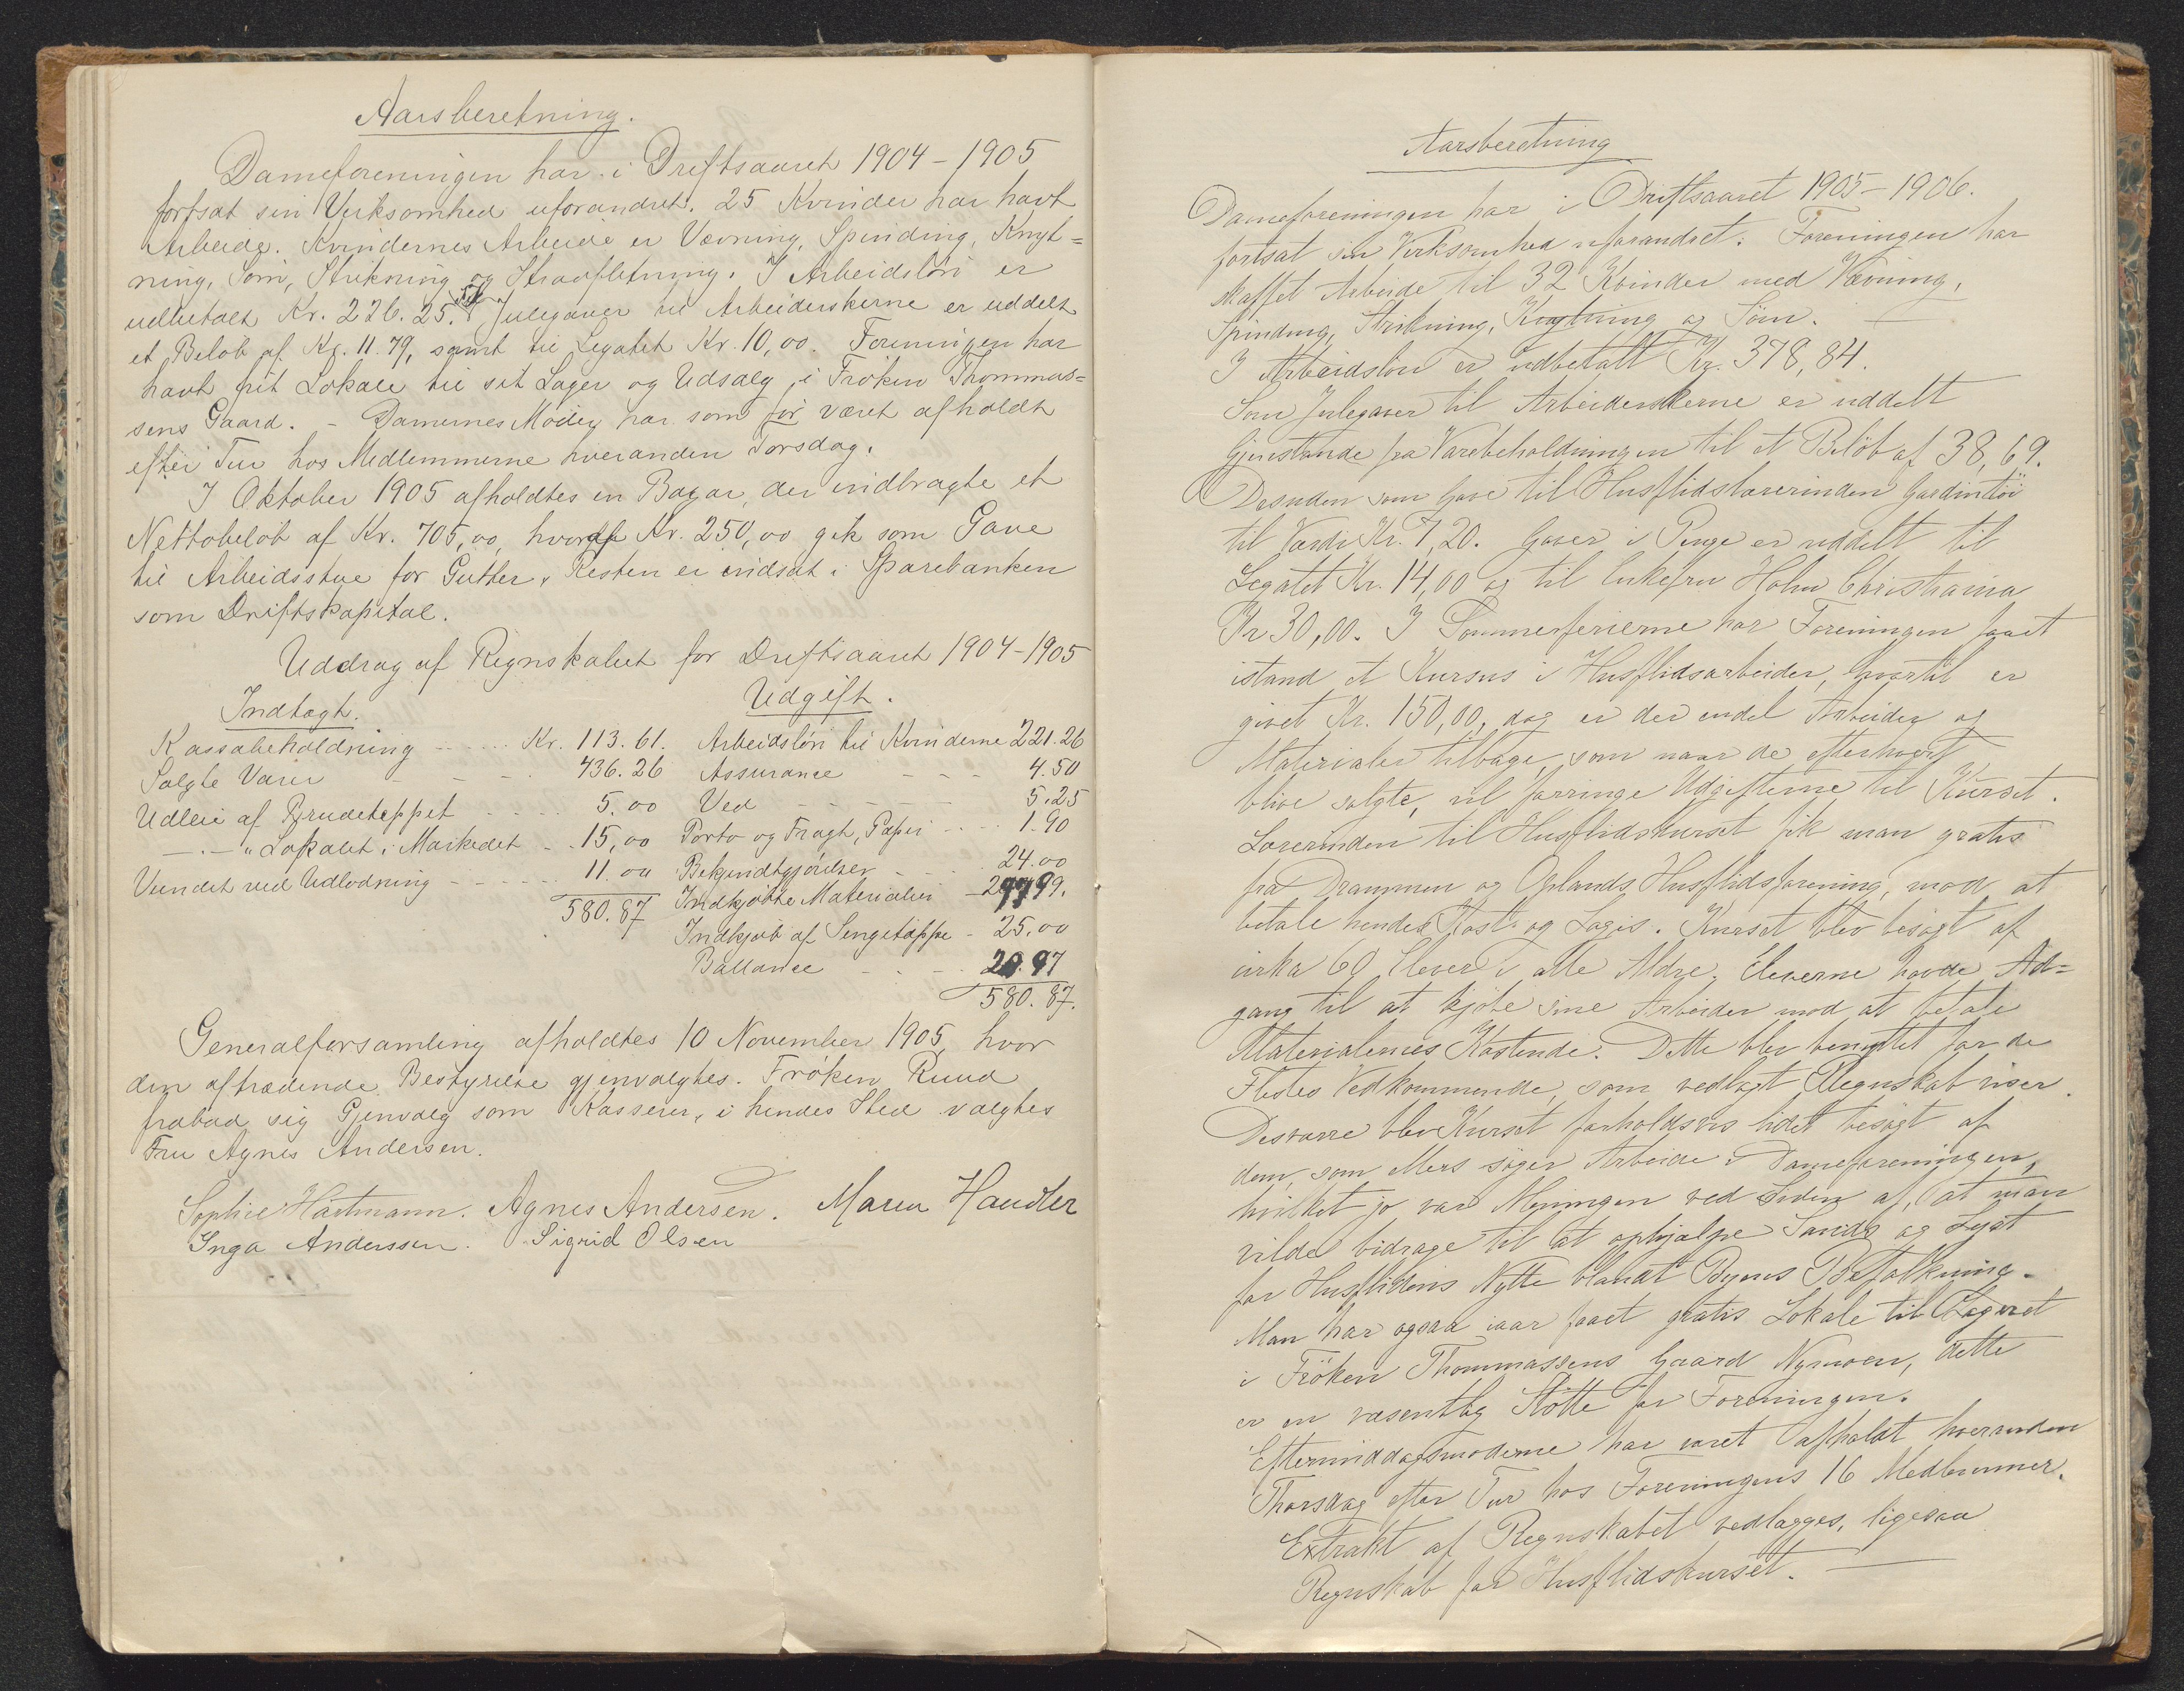 Aarsberetning.
Dameforeningen har i Driftsaaret 1904-1905
fortsat sin Virksomhed uforandret. 25 Kvinder har havt
Arbeide. Kvindernes Arbeide er Vævning, Spinding, Knyt=
ning, Söm, Strikning og Straafletning. I Arbeidslön er
udbetalt Kr. 226.25. Til Julegaver til Arbeiderskerne er uddelt
et Belöb af Kr. 11.79, samt til Legatet Kr. 10,00. Foreningen har
havt frit Lokale til sit Lager og Udsalg i Fröken Thommas=
sens Gaard. - Damernes Möder har som för været afholdt
efter Tur hos Medlemmerne hveranden Torsdag.
I Oktober 1905 afholdtes en Bazar, der indbragte et
Nettobelöb af Kr. 705,00, hvoraf Kr. 250,00 gik som Gave
til Arbeidsstue for Gutter, Resten er indsat i Sparebanken
som Driftskapital.
Uddrag af Regnskabet for Driftsaaret 1904-1905
Indtægt. Udgift.
Kassabeholdning - - - Kr. 113.61. Arbeidslön til Kvinderne 221.26
Solgte Varer - - - 436.26 Assurance - - - 4.50
Udleie af Brudeteppet - - - 5.00 Ved - - - 5.25
- . - " Lokalet i Markedet - 15,00 Porto og Fragt, Papir - - 1.90
Vundet ved Udlodning - - - 11.00 Bekjendtgjörelser - - 24.00
580.87 Indkjöbte Materialier - 277.99.
Indkjöb af Sengetæppe - 25.00
Ballance - - - 20.97
580.87.
Generalforsamling afholdtes 10 November 1905, hvor
den aftrædende Bestyrelse gjenvalgtes. Fröken Ruud
frabad sig Gjenvalg som Kasserer, i hendes Sted valgtes
Fru Agnes Andersen.
Sophie Hartmann. Agnes Andersen. Maren Handler
Inga Anderssen. Sigrid Olsen
Aarsberetning
Dameforeningen har i Driftsaaret 1905-1906.
fortsat sin Virksomhed uforandret. Foreningen har
skaffet Arbeide til 32 Kvinder med Vævning,
Spinding, Strikning, Knytning og Söm.
I Arbeidslön er udbetalt Kr. 378,84.
Som Julegaver til Arbeiderskerne er uddelt
Gjenstande fra Varebeholdningen til et Belöb af 38,69.
Desuden som Gave til Husflidslærerinden Gardintöi
til Værdi Kr. 7,20. Gaver i Penge er uddelt til
Legatet Kr. 14,00 og til Enkefru Holm Christiania
Kr 30,00. I Sommerferierne har Foreningen faaet
istand et Kursus i Husflidsarbeider, hvortil er
givet Kr. 150,00, dog er der endel Arbeider og
Materialer tilbage, som naar de efterhvert
blive solgte, vil forringe Udgifterne til Kurset.
Lærerinden til Husflidskurset fik man gratis
fra Drammen og Oplands Husflidsforening, mod at
betale hendes Kost og Logis. Kurset blev besögt af
cirka 60 Elever i alle Aldre. Eleverne havde Ad=
gang til at kjöbe sine Arbeider mod at betale
Materialernes Kostende. Dette blev benyttet for de
Flestes Vedkommende, som vedlagt Regnskab viser.
Desværre blev Kurset forholdsvis lidet besögt af
dem, som ellers söger Arbeide i Dameforeningen,
hvilket jo var Meningen ved Siden af, at man
vilde bidrage til at ophjælpe Sands og Lyst
for Husflidens Nytte blandt Byens Befolkning.
Man har ogsaa iaar faaet gratis Lokale til Lageret
i Fröken Thommassens Gaard Nymoen, dette
er en væsentlig Stötte for Foreningen.
Eftermiddagsmöderne har været afholdt hveranden
Thorsdag efter Tur hos Foreningens 16 Medlemmer.
Extrakt af Regnskabet vedlægges, ligesaa
Regnskab for Husflidskurset.